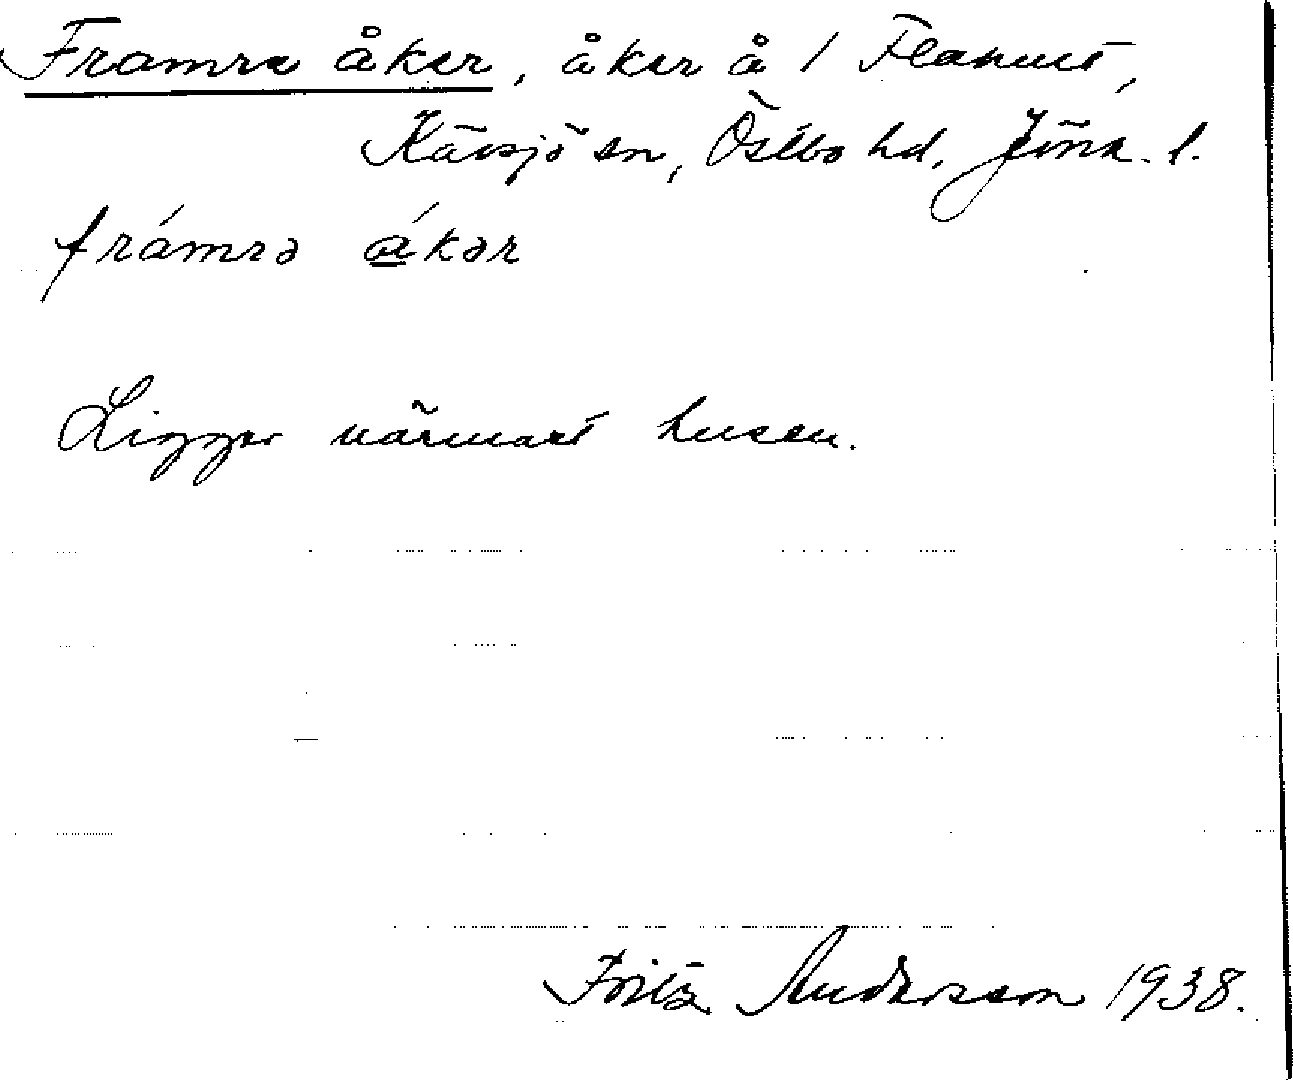 Framre åker, åker å 1 Flahult,
Kävsjö sn, Östbo hd, Jönk. l.
frámrə á̱kər
Ligger närmast husen.
Fritz Andersson 1938.